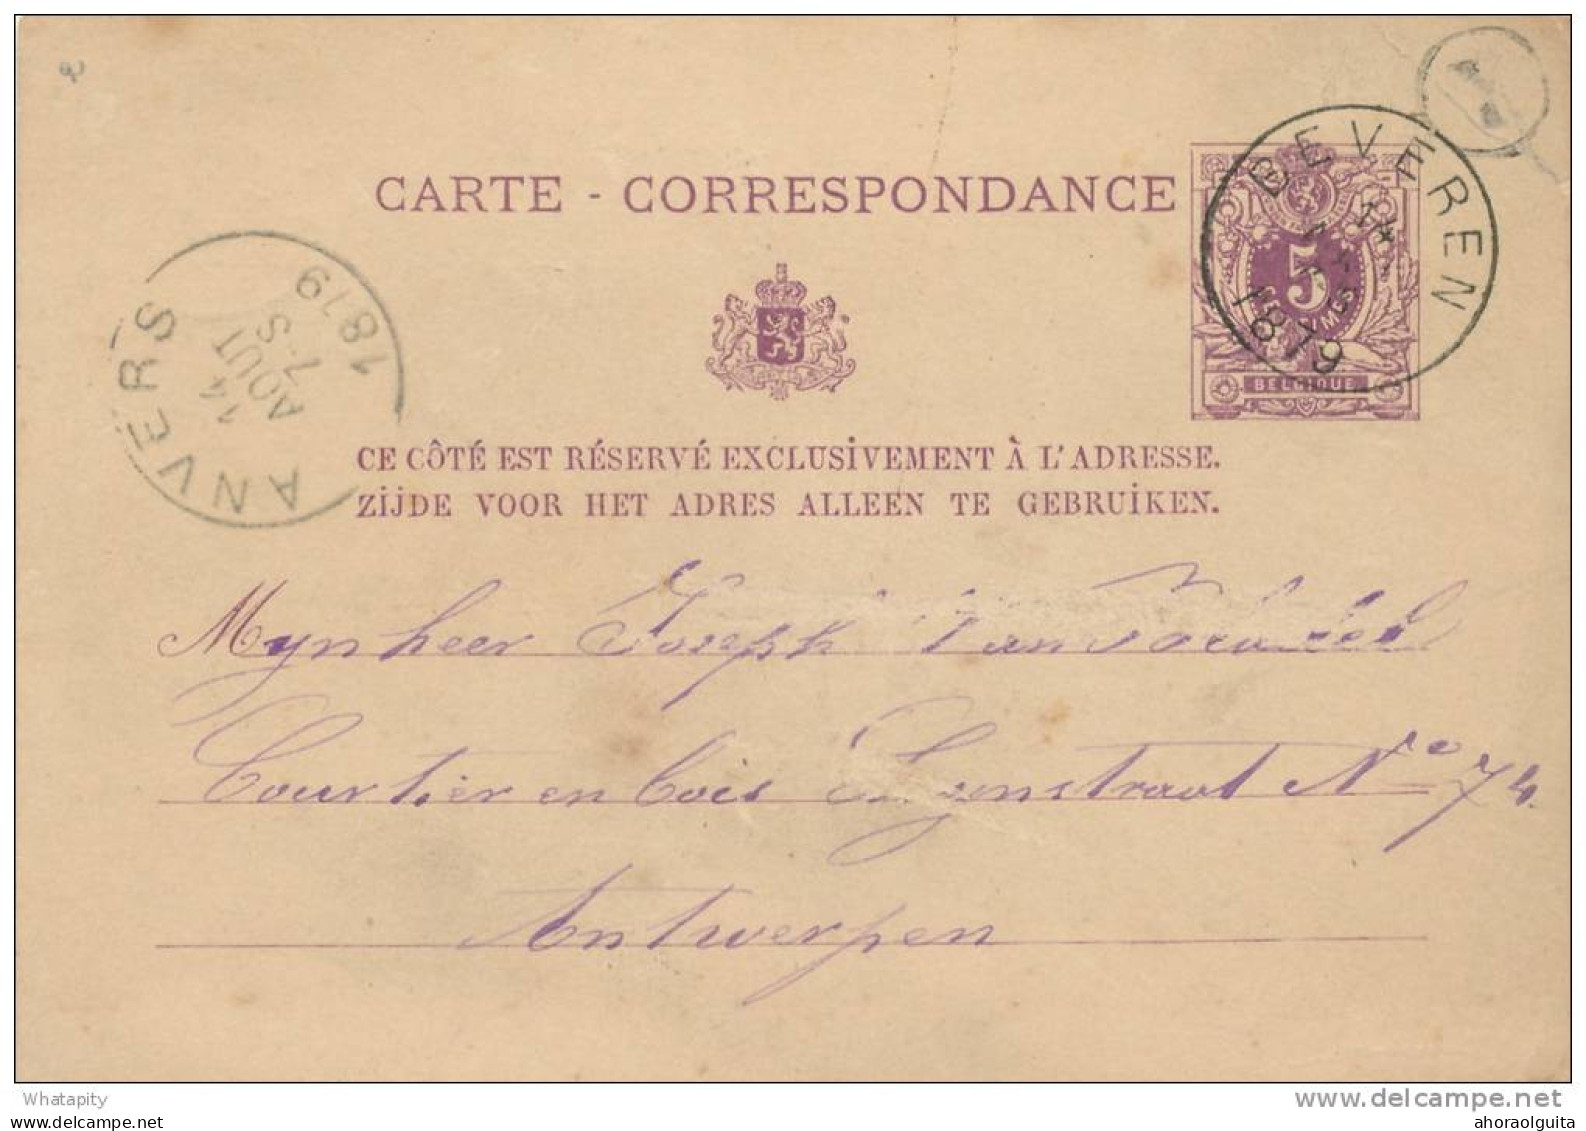 CARTE - CORRESPONDANCE
BEVEREN
1879
5
CENTIMES
BELGIQUE
ANVERS
14
AOUT
7-S
1879
CE CÔTÉ EST RÉSERVÉ EXCLUSIVEMENT À L'ADRESSE.
ZIJDE VOOR HET ADRES ALLEEN TE GEBRUIKEN.
Mynheer Joseph Van
Courtier en bois No 74
Antwerpen
Whatapity
www.delcampe.net
ahoraolguita